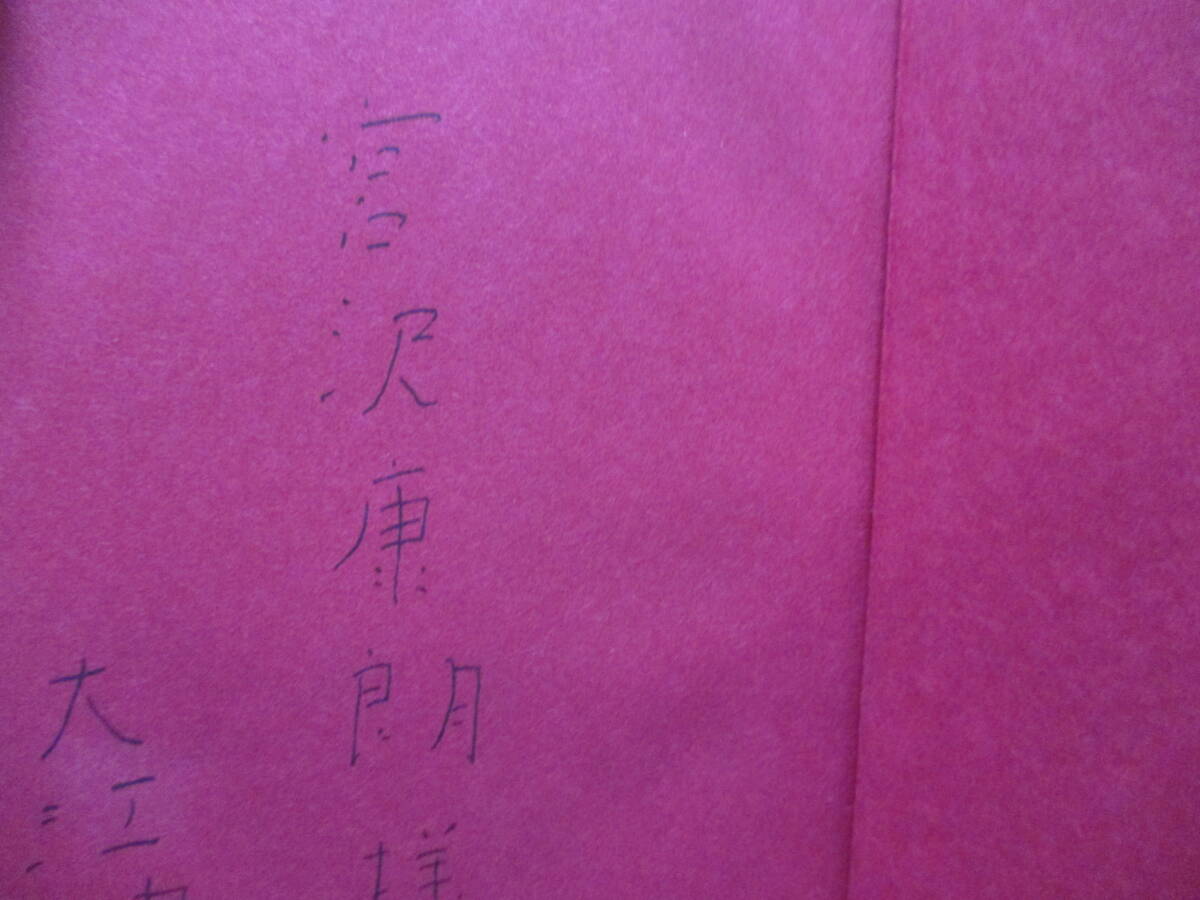 宮沢康朗様
大江